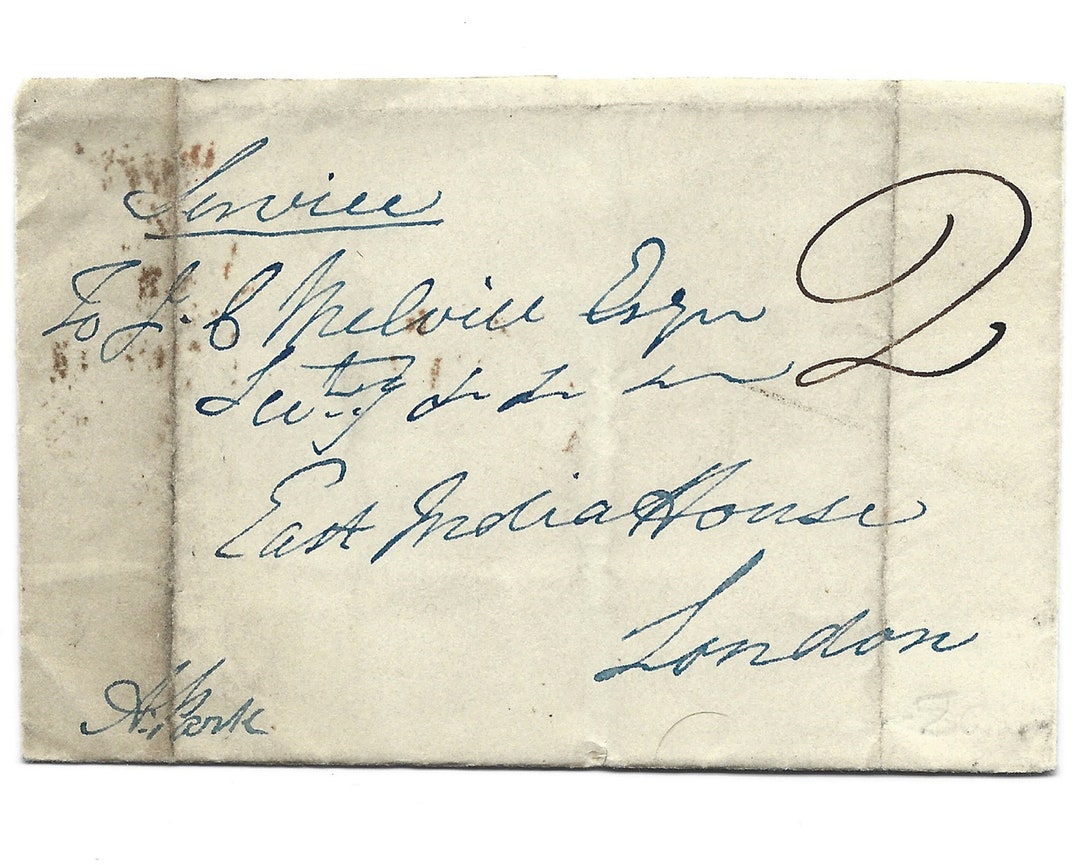 Service
2
To J. C Melvill Esqr
Secty &c &c &c
East India House
London
A. Park